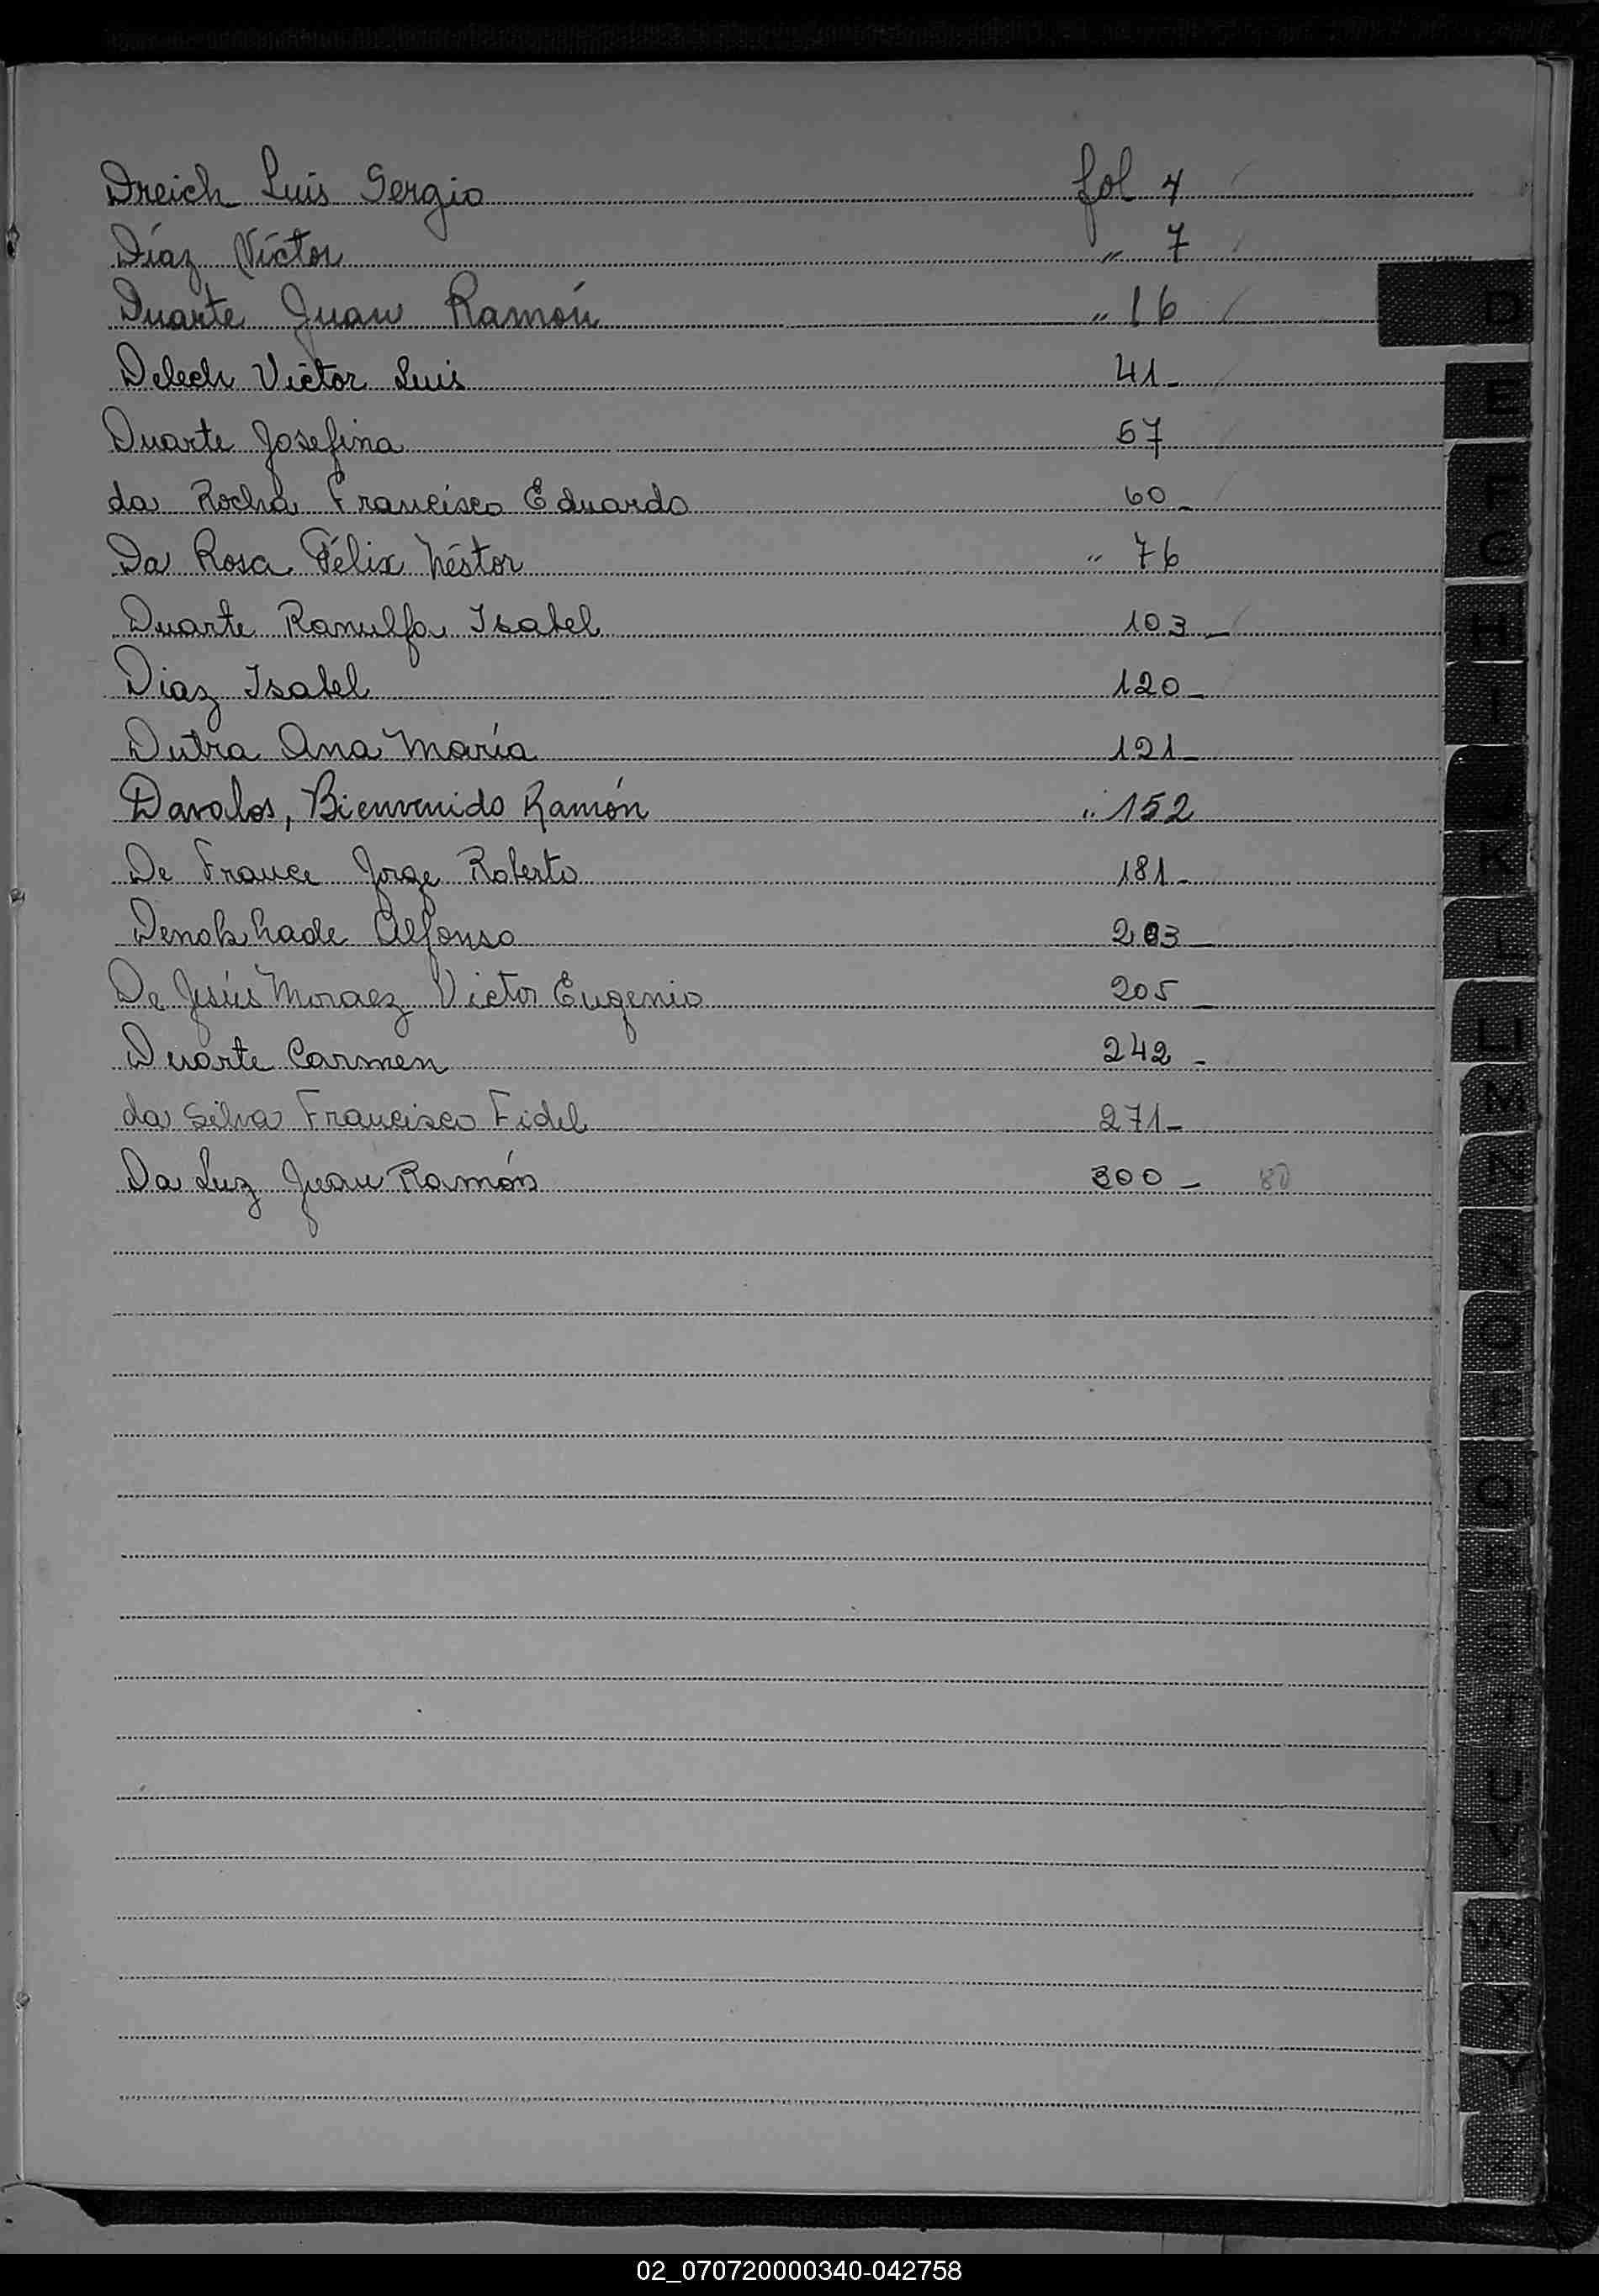 Dreich Luis Sergio fol 4
Díaz Víctor " 7
Duarte Juan Ramón " 16
Delech Victor Luis 41-
Duarte Josefina 57
da Rocha Francisco Eduardo 60-
Da Rosa Félix Néstor " 76
Duarte Ranulfa Isabel 103-
Diaz Isabel 120-
Dutra Ana María 121-
Davalos, Bienvenido Ramón " 152
De France Jorge Roberto 181-
Alfonso 203-
De Jesús Moraez Victor Eugenio 205-
Duarte Carmen 242-
da Silva Francisco Fidel 271-
Da Luz Juan Ramón 300- 80
D
E
F
G
H
I
J
K
L
Ll
M
N
Ñ
O
P
Q
R
S
T
U
V
W
X
Y
Z
02_070720000340-042758